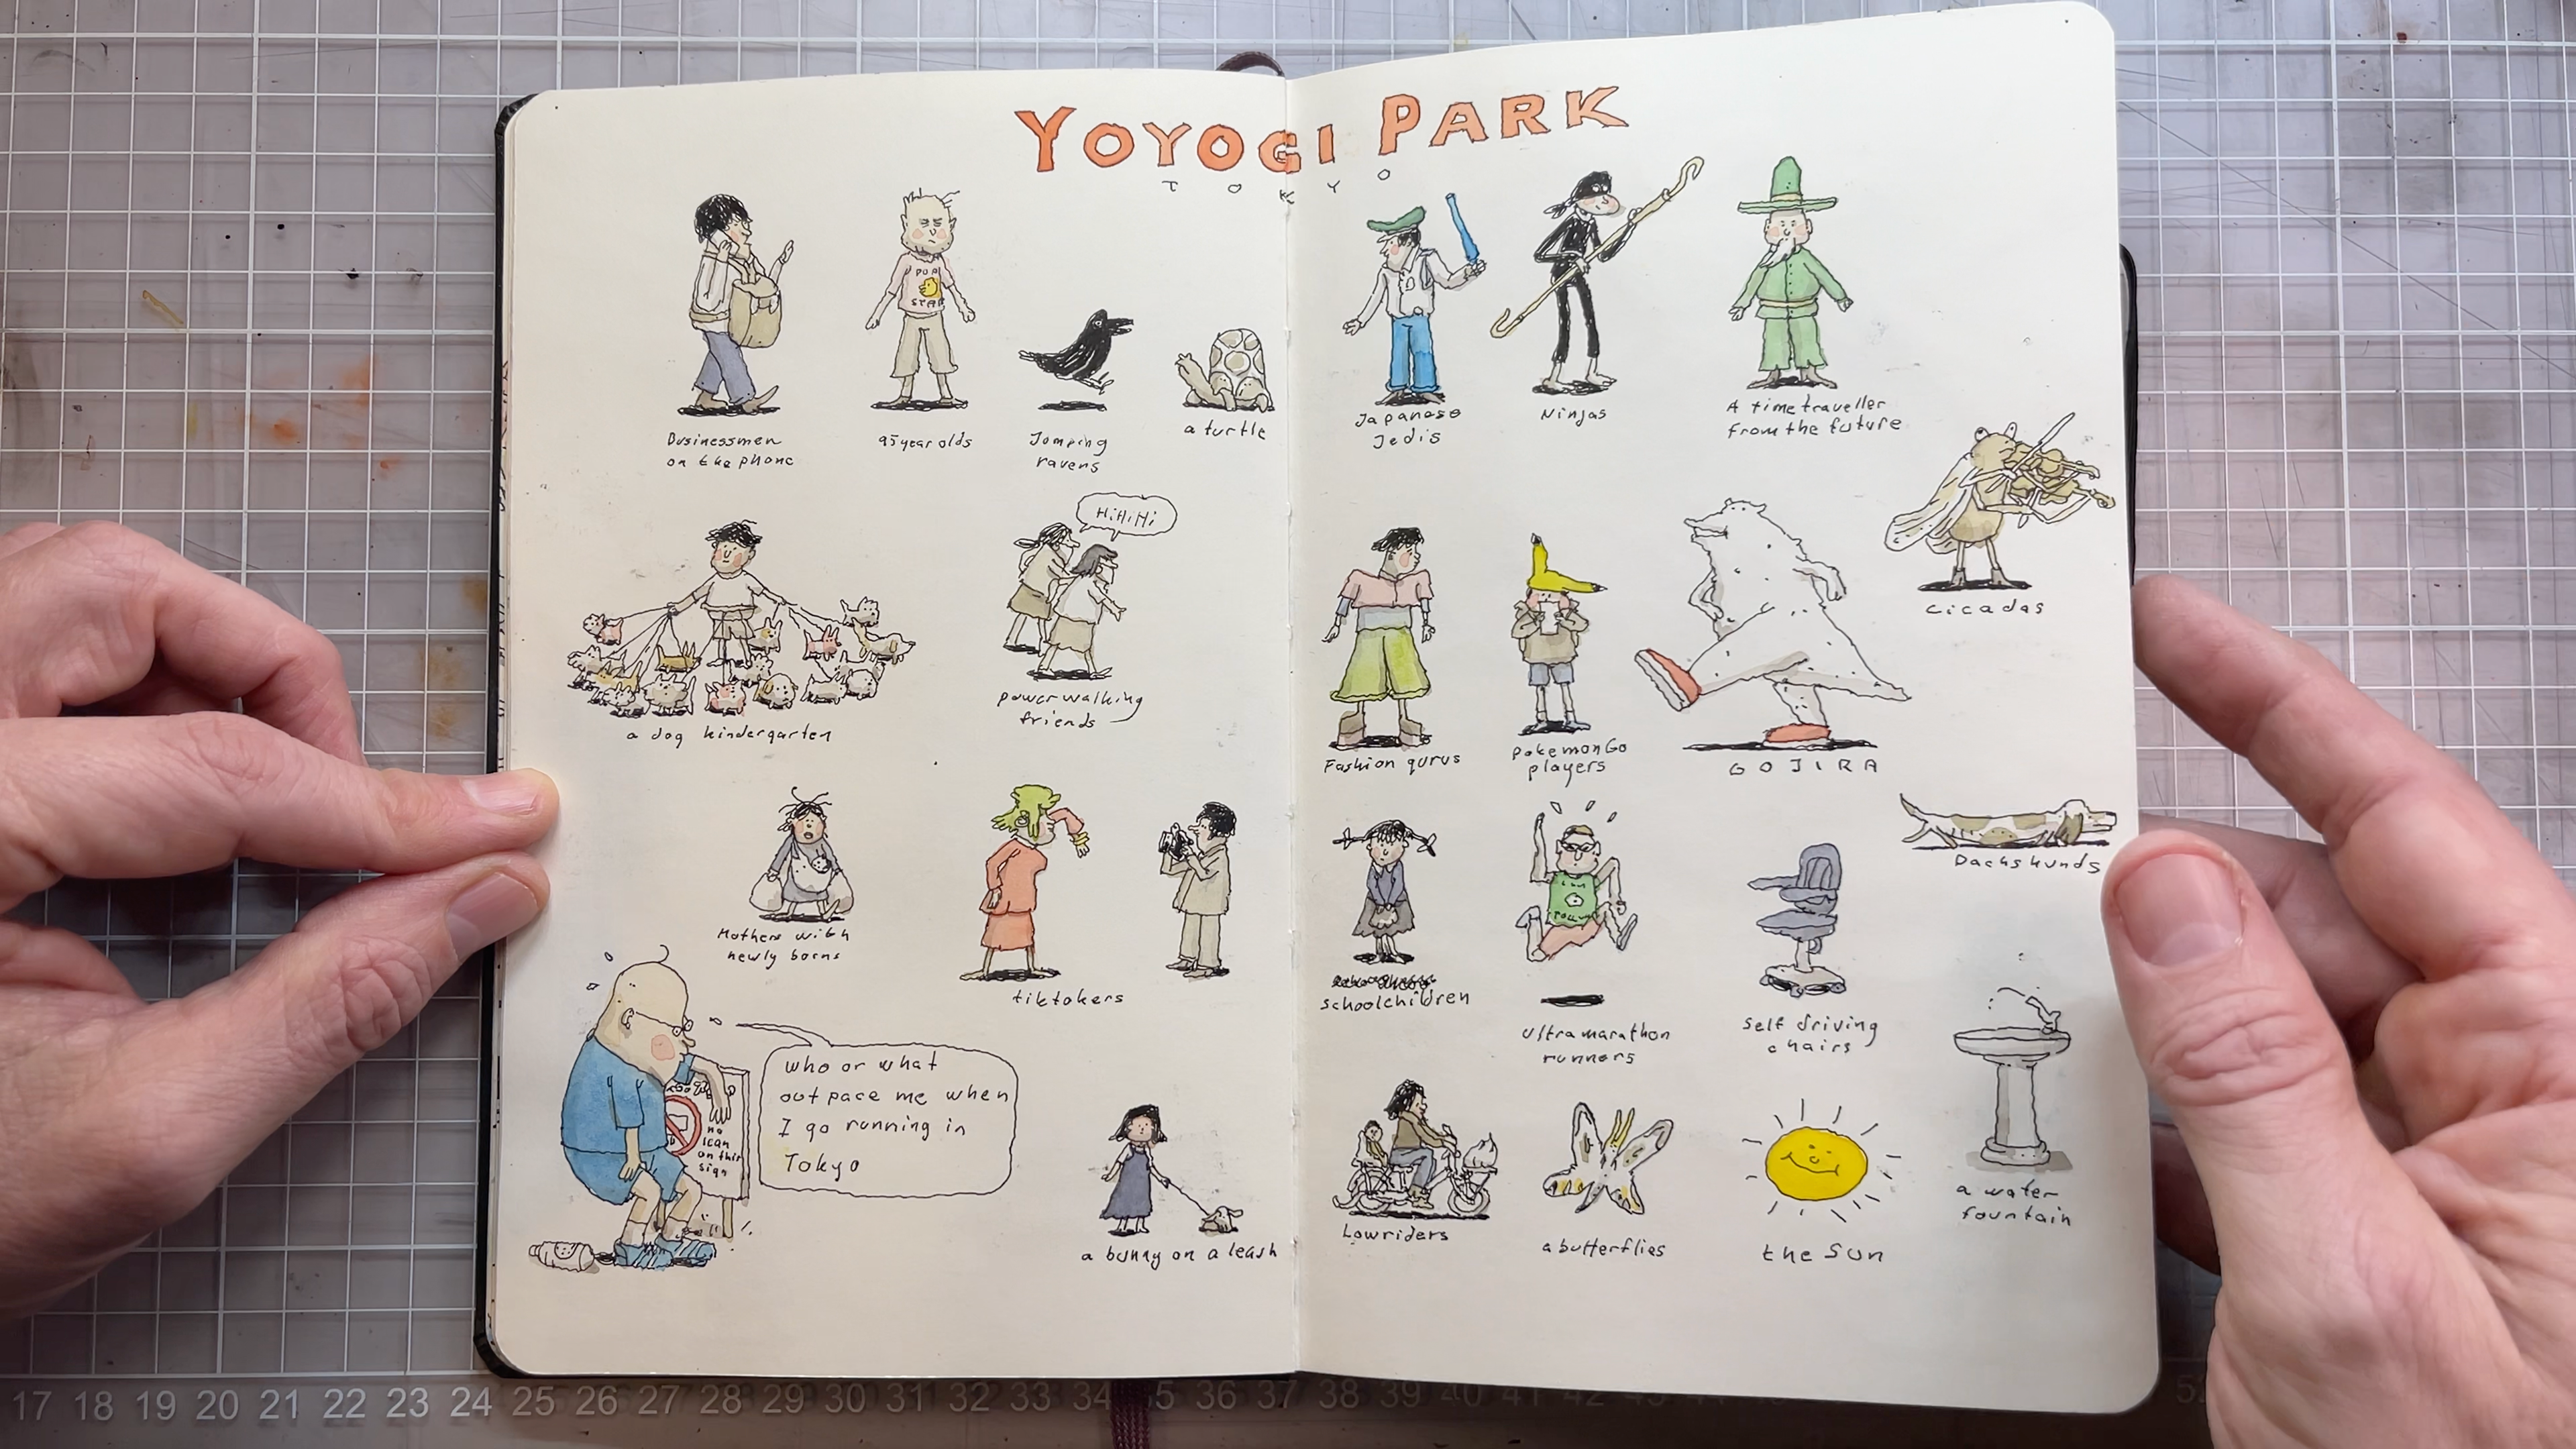 YOYOGI PARK
TOKYO
POP
STAR
Businessmen
on the phone
95 year olds
Jomping
ravens
a turtle
Japanese
Jedis
Ninjas
A time traveller
from the future
Cicadas
HiHiHi
a dog kindergarten
power walking
friends
Fashion gurus
pokemonGo
players
GOJIRA
Dachshunds
Mothers with
newly borns
tiktokers
schoolchildren
ultramarathon
runners
self driving
chairs
who or what
outpace me when
I go running in
Tokyo
no
ican
on this
sign
a bunny on a leash
Lowriders
a butterflies
the sun
a water
fountain
17 18 19 20 21 22 23 24 25 26 27 28 29 30 31 32 33 34 5 36 37 38 39 40 41 42